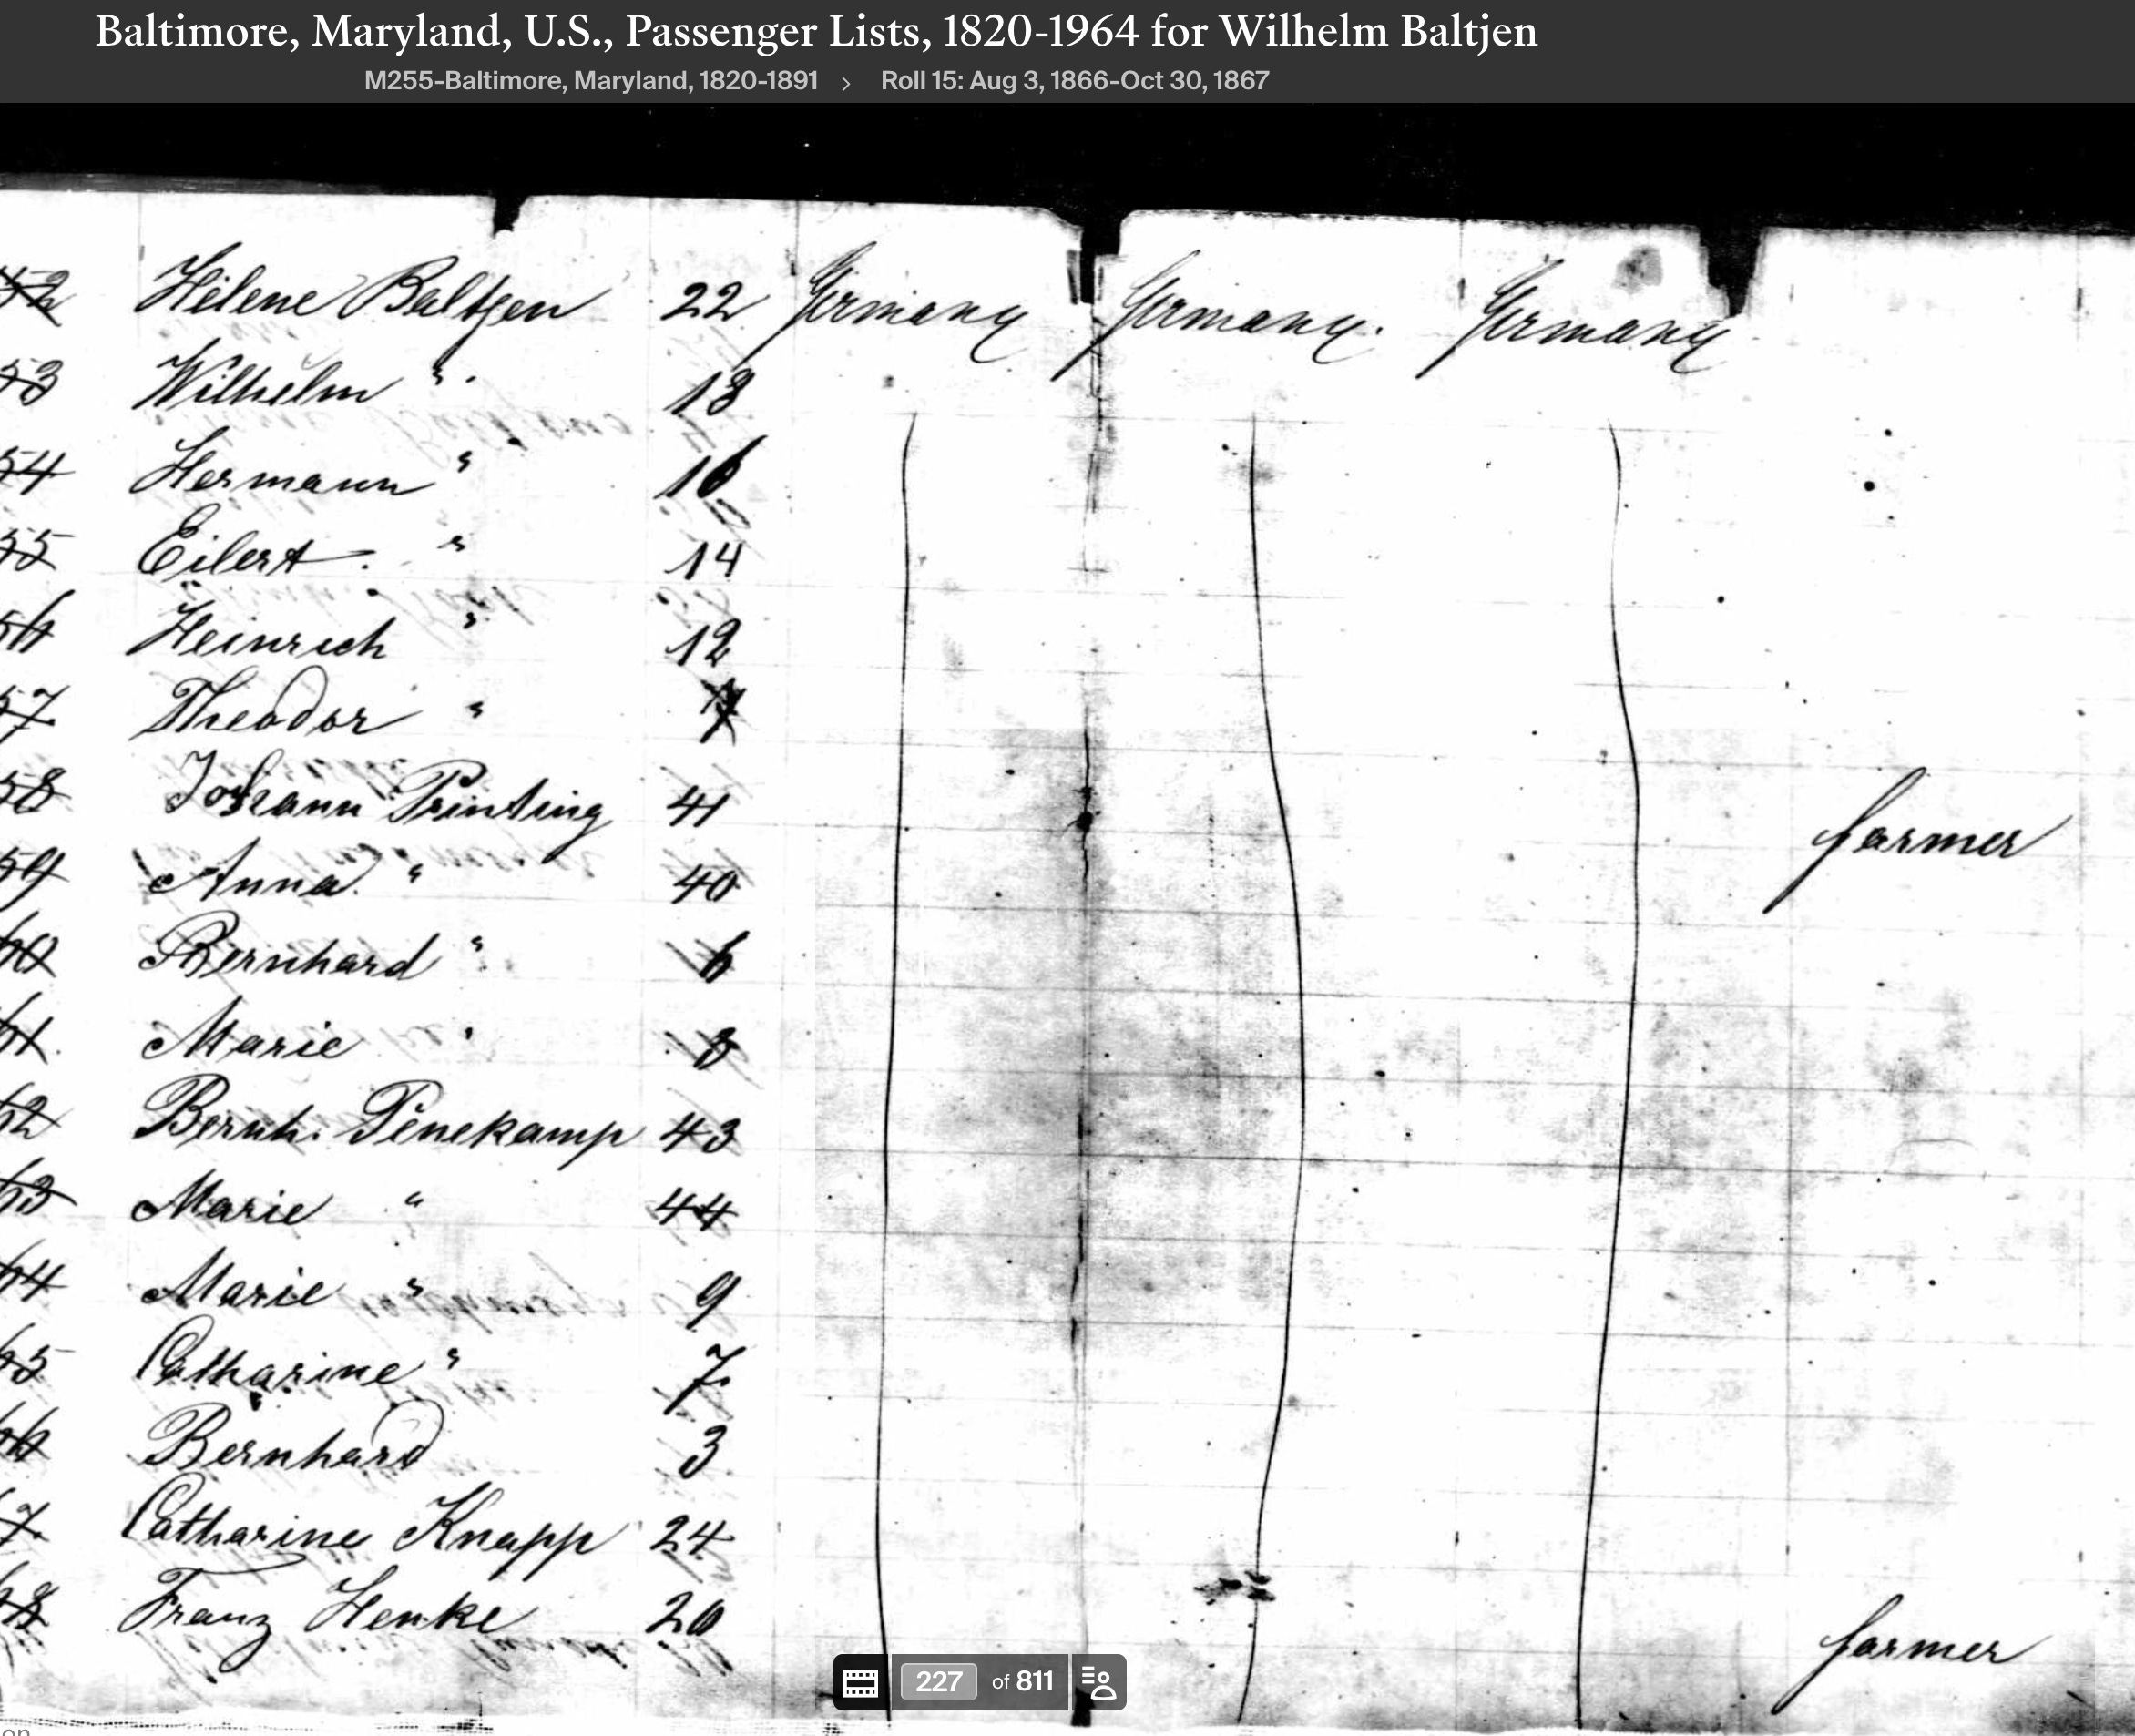 Baltimore, Maryland, U.S., Passenger Lists, 1820-1964 for Wilhelm Baltjen
M255-Baltimore, Maryland, 1820-1891 › Roll 15: Aug 3, 1866-Oct 30, 1867
52 Helene Baltjen 22 Germany Germany. Germany
53 Wilhelm " 18
54 Hermann " 16
55 Eilert " 14
56 Heinrich " 12
57 Theodor "
58 Johann Printing 41 farmer
59 Anna " 40
60 Bernhard " 6
61 Marie " 3
62 Bernh. Penekamp 43
63 Marie " 44
64 Marie " 9
65 Catharine " 7
66 Bernhard 3
7 Catharine Knapp 24
68 Franz Henke 20 farmer
227 of 811
on